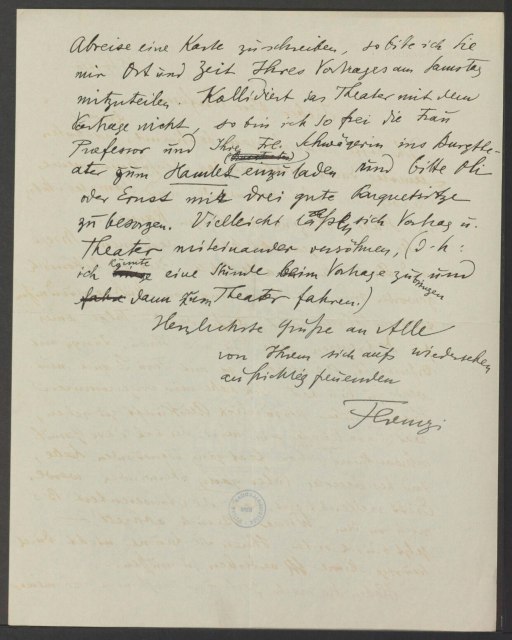 Abreise eine Karte zu schreiben, so bitte ich Sie
mir Ort und Zeit Ihres Vortrages am Samstag
mitzuteilen. Kollidiert das Theater mit dem
Vortrage nicht, so bin ich so frei die Frau
Professor und Ihre Frl. Schwägerin ins Burgthe-
ater zum Hamlet einzuladen und bitte Oli
oder Ernst mir drei gute Parquetsitze
zu besorgen. Vielleicht lassen sich Vortrag u.
Theater miteinander versöhnen, (d. h:
ich könnte eine Stunde beim Vortrage zubringen und
dann zum Theater fahren.)
Herzlichste Grüße an Alle
von Ihrem sich aufs wiedersehen
aufrichtig freuenden
Ferenczi